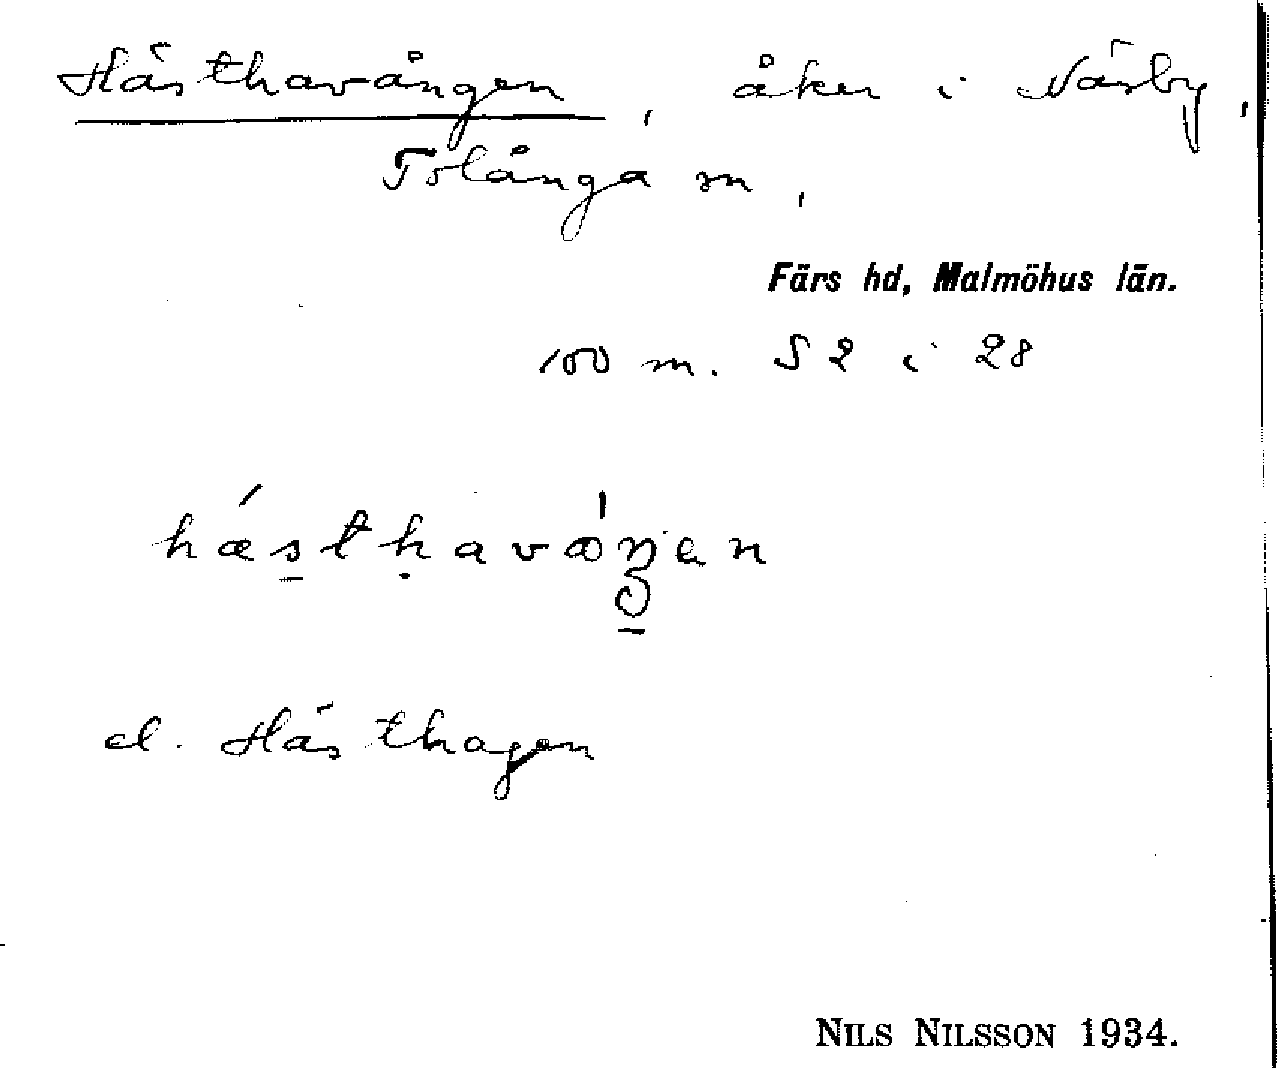 Hästhavången, åker i Näsby,
Tolånga sn,
Färs hd, Malmöhus län.
100 m. S 2 i 28
hæ´sthavωŋen
el. Hästhagen
NILS NILSSON 1934.